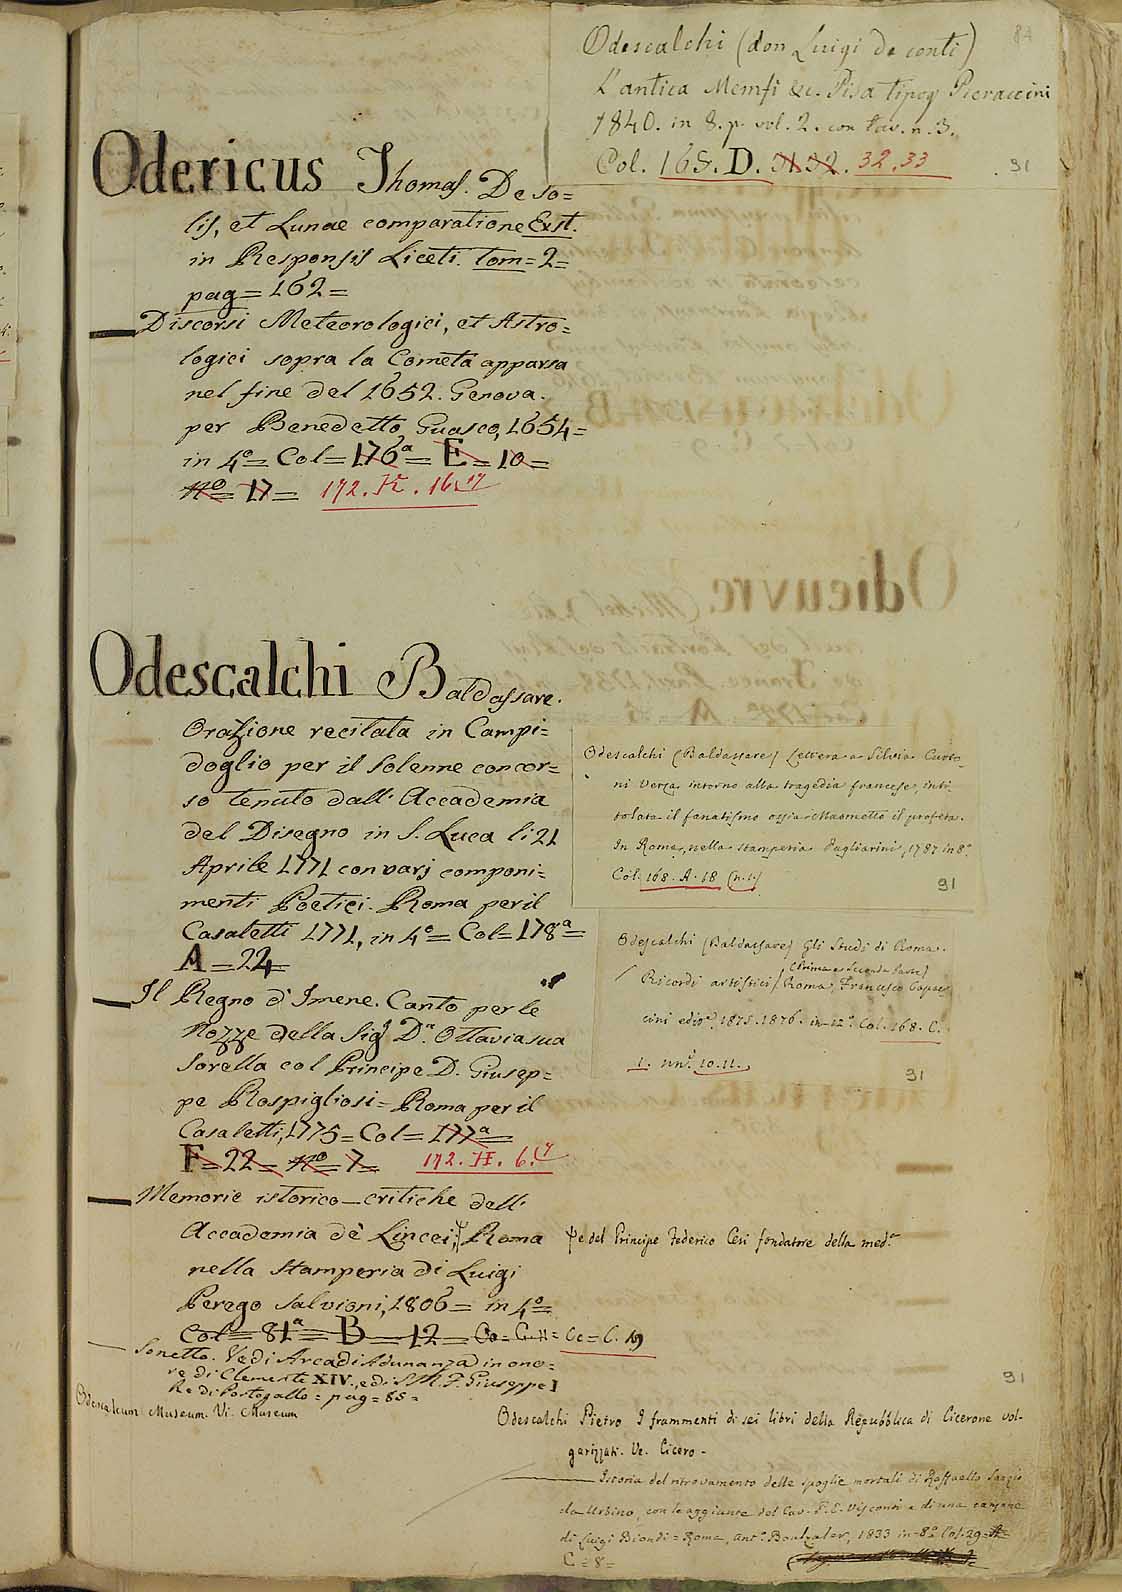 84
Odescalchi (don Luigi de conti)
L'antica Memfi &c. Pisa tipog Pieraccini
1840. in 8. p. vol. 2. con tav. n. 3.
Col. 165. D. 31.32. 32.33
91
Odericus Thomas. De so=
lis, et Lunae comparatione Exst.
in Responsis Liceti. tom=2=
pag=162=
Discorsi Meteorologici, et Astro=
logici sopra la Cometa apparsa
nel fine del 1652. Genova.
per Benedetto Guasco, 1654=
in 4º= Col= 176ª= E= 10=
nº= 17= 172. K. 16.17
Odescalchi Baldassare.
Orazione recitata in Campi=
doglio per il solenne concor=
so tenuto dall' Accademia
del Disegno in S. Luca li 21
Aprile 1771 con varj componi=
menti Poetici. Roma per il
Casaletti 1771, in 4º= Col=178ª=
A=22=
Il Regno d'Imene. Canto per le
Nozze della Sigª Dª Ottavia sua
sorella col Principe D. Giusep=
pe Rospigliosi= Roma per il
Casaletti, 1775= Col= 177ª=
F= 22= nº= 7= 172. H. 6.
Memorie istorico-critiche dell'
Accademia dè Lincei, Roma
nella stamperia di Luigi
Perego Salvioni, 1806= in 4º=
Col= 81ª= B= 12= Cc= C. 19
Sonetto. Vedi Arcadi Adunanza in ono=
re di Clemente XIV., e di S. M. F. Giuseppe I
Re di Portogallo= pag=85=
Odescalcum Museum. Vi. Museum
Odescalchi (Baldassare) Lettera a Silvia Curto
ni Verza intorno alla tragedia francese, inti
tolata il fanatismo ossia Maometto il profeta.
In Roma, nella stamperia Pagliarini, 1787 in 8º
Col. 168. A. 18 (n. 1.)
91
Odescalchi (Baldassare) Gli Studi di Roma.
(Prima e Seconda Parte)
Ricordi artistici / Roma, Francesco Capac
cini edit. 1875.1876. in 12º. Col. 168. C.
1. nn. 10.11.
91
e del Principe Federico Cesi fondatore della med.ª
91
Odescalchi Pietro I frammenti di sei libri della Repubblica di Cicerone vol-
garizzati. Ve. Cicero-
Istoria del ritrovamento delle spoglie mortali di Raffaello Sanzio
da Urbino, con le aggiunte del Cav. P. E. Visconti e di una canzone
di Luigi Biondi= Roma, Antº. Boulzaler, 1833 in=8º Col. 29=A=
C=8=